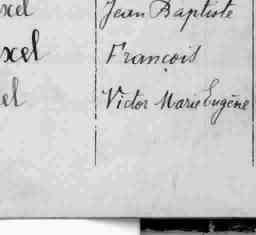 xel Jean Baptiste
xel François
el Victor Marie Eugène